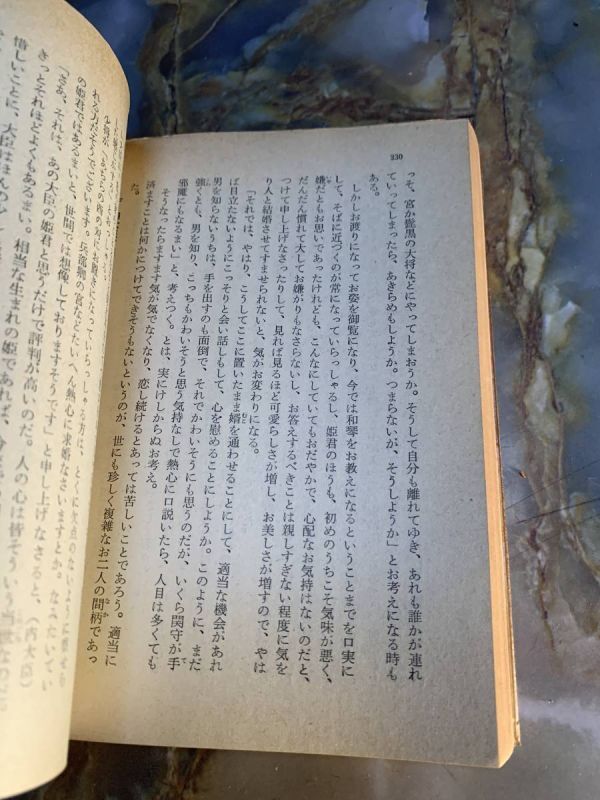 330
っそ、宮か髭黒の大将などにやってしまおうか。そうして自分も離れてゆき、あれも誰かが連れ
ていってしまったら、あきらめもしようか。つまらないが、そうしようか」とお考えになる時も
ある。
しかしお渡りになってお姿を御覧になり、今では和琴をお教えになるということまでを口実に
して、そばに近づくのが常になっていらっしゃるし、姫君のほうも、初めのうちこそ気味が悪く、
嫌だともお思いであったけれども、こんなにしていてもおだやかで、心配なお気持はないのだと、
だんだん慣れて大してお嫌がりもなさらないし、お答えするべきことは親しすぎない程度に気を
つけて申し上げなさったりして、見れば見るほど可愛らしさが増し、お美しさが増すので、やは
り人と結婚させてすませられないと、気がお変わりになる。
「それでは、やはり、こうしてここに置いたまま婿を通わせることにして、適当な機会があれ
ば目立たないようにこっそりと会い話しもして、心を慰めることにしようか。このように、まだ
男を知らないうちは、手を出すのも面倒で、それでかわいそうにも思うのだが、いくら関守が手
強くとも、男を知り、こっちもかわいそうと思う気持なしで熱心に口説いたら、人目は多くても
邪魔にもなるまい」と、考えつく。とは、実にけしからぬお考え。
そうなったらますます気が気でなくなり、恋し続けるとあっては苦しいことであろう。適当に
済ますことは何かにつけてできそうもないというのが、世にも珍しく複雑なお二人の間柄であっ
た。
れる方だそうでございます。兵部卿の宮などたいへん熱心に求婚なさいますとか。
の姫君ではあるまいと、世間では想像しておりますそうです」と申し上げなさると、
「さあ、それは、あの大臣の姫君と思うだけで評判が高いのだ。人の心は皆そう
きっとそれほどよくもあるまい。相当な生まれの姫であれば、
惜しいことに、大臣はほんの少し